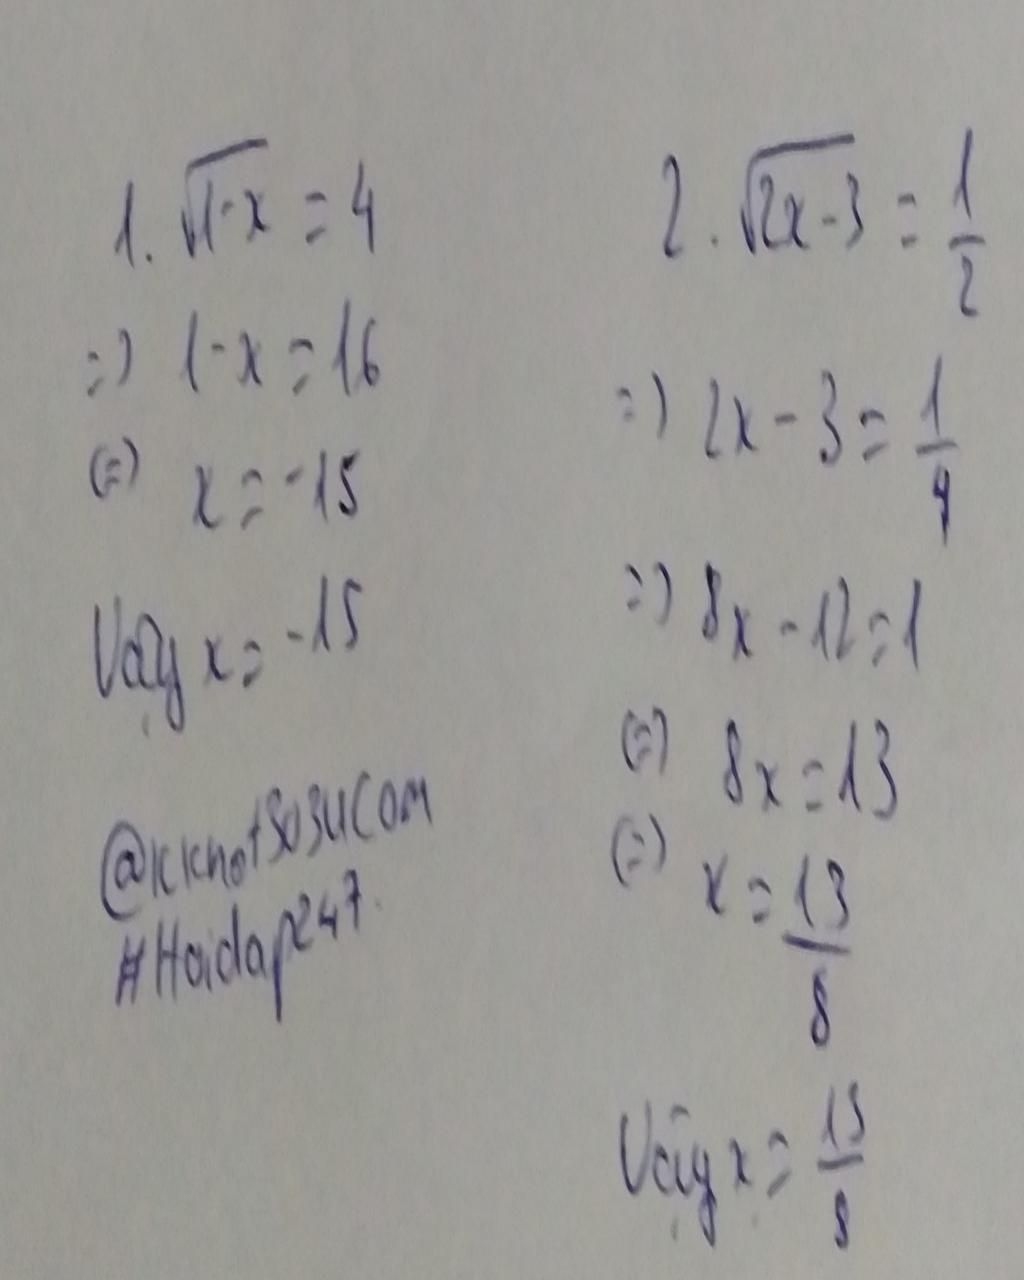 1. √1-x = 4
=) 1-x = 16
(=) x = -15
Vậy x = -15
#Hoidap247.
2. √2x-3 = 1/2
=) 2x - 3 = 1/4
=) 8x - 12 = 1
(=) 8x = 13
(=) x = 13/8
Vậy x = 13/8